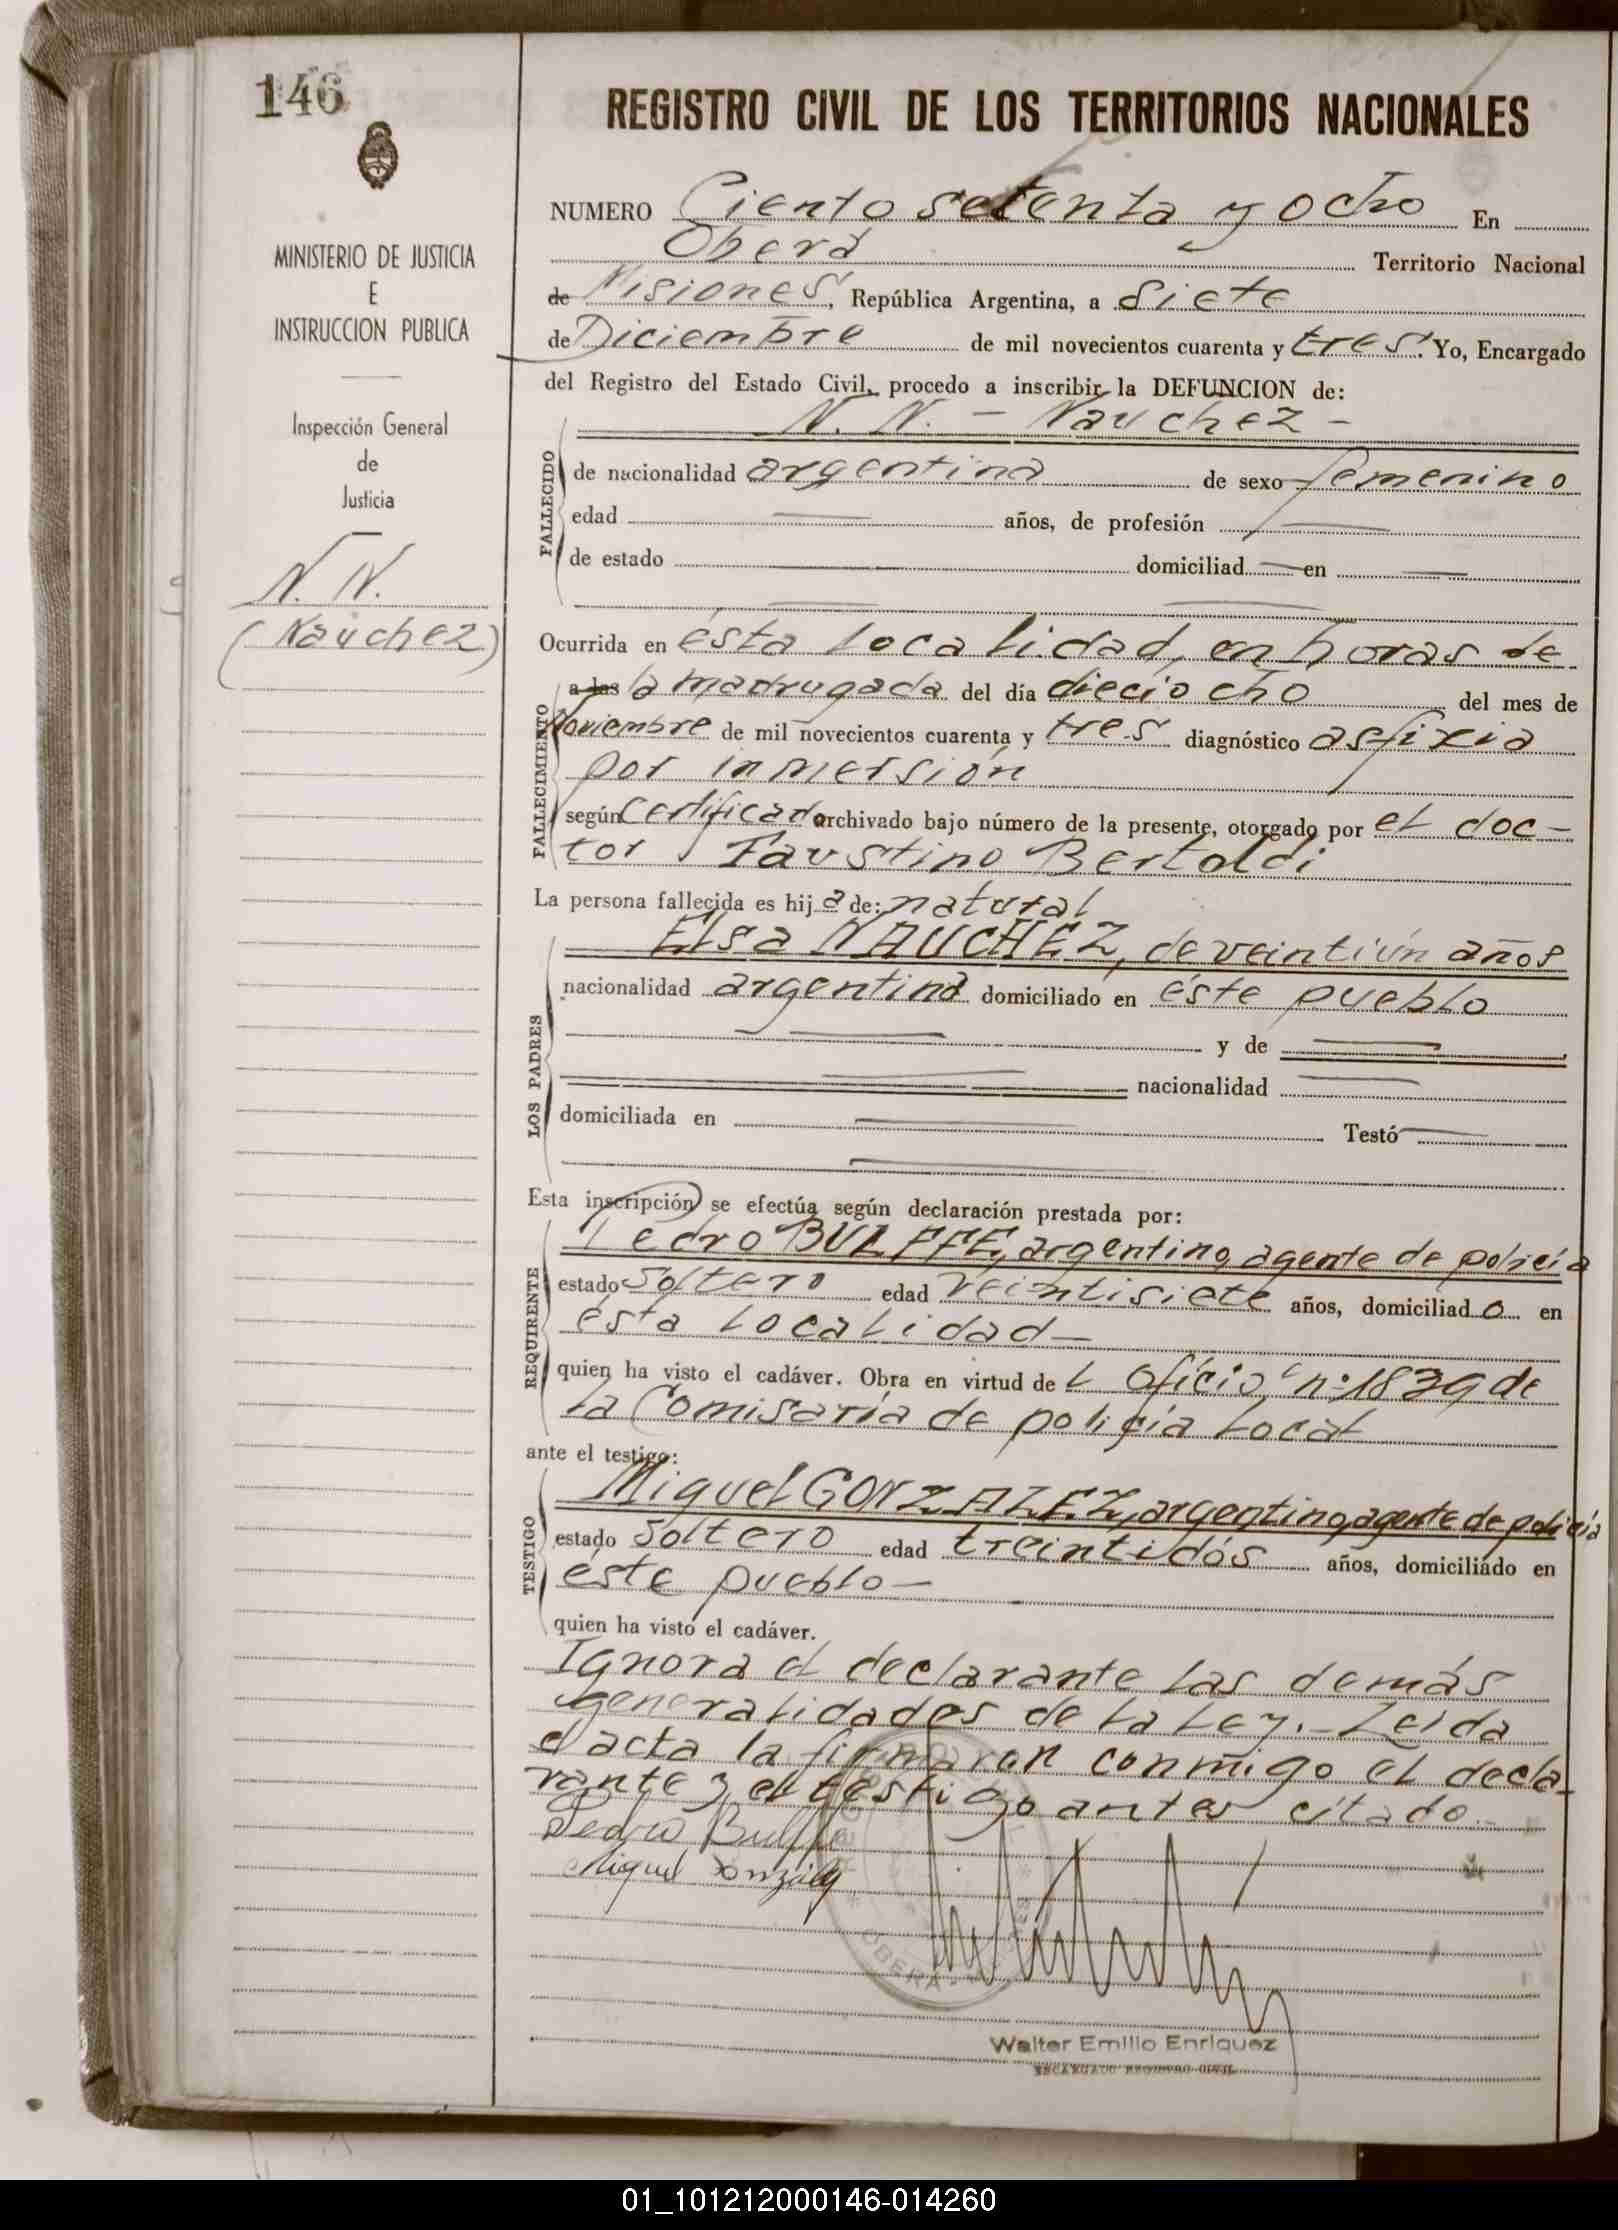 146
REGISTRO CIVIL DE LOS TERRITORIOS NACIONALES
MINISTERIO DE JUSTICIA
E
INSTRUCCION PUBLICA
Inspección General
de
Justicia
N. N.
(Nauchez)
NUMERO Ciento setenta y ocho En
Oberá Territorio Nacional
de Misiones, República Argentina, a siete
de Diciembre de mil novecientos cuarenta y tres. Yo, Encargado
del Registro del Estado Civil, procedo a inscribir la DEFUNCION de:
N. N. - Nauchez -
FALLECIDO
de nacionalidad argentina de sexo femenino
edad — años, de profesión —
de estado — domiciliad — en —
Ocurrida en ésta localidad, en horas de
FALLECIMIENTO
a las la madrugada del día dieciocho del mes de
Noviembre de mil novecientos cuarenta y tres diagnóstico asfixia
por inmersión
según certificado archivado bajo número de la presente, otorgado por el doc-
tor Faustino Bertoldi
La persona fallecida es hija de: natural
LOS PADRES
Elsa NAUCHEZ, de veintiún años
nacionalidad argentina domiciliado en éste pueblo
— y de —
— nacionalidad —
domiciliada en — Testó —
Esta inscripción se efectúa según declaración prestada por:
REQUIRENTE
Pedro BULFFE, argentino, agente de policía
estado soltero edad veintisiete años, domiciliado en
ésta localidad —
quien ha visto el cadáver. Obra en virtud del Oficio nº 1839 de
la Comisaría de policía local
ante el testigo:
TESTIGO
Miguel GONZALEZ, argentino, agente de policía
estado soltero edad treintidós años, domiciliado en
éste pueblo —
quien ha visto el cadáver.
Ignora el declarante las demás
generalidades de la Ley. - Leída
el acta la firmaron conmigo el decla-
rante y el testigo antes citado.-
Pedro Bulffe
Miguel González
OBERA
Walter Emilio Enriquez
ENCARGADO REGISTRO CIVIL
01_101212000146-014260